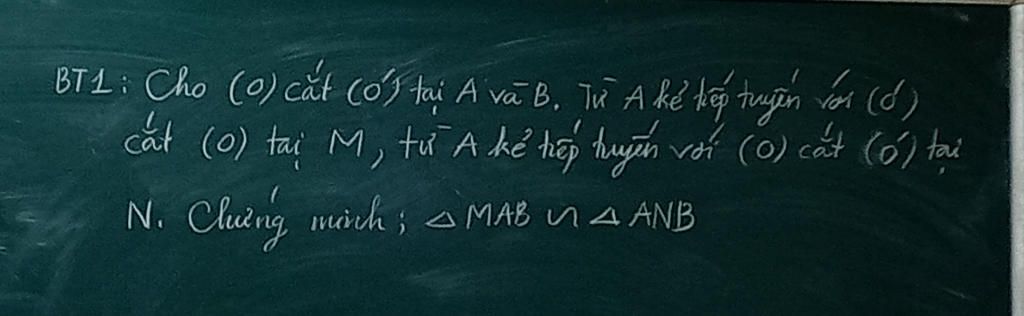 BT1: Cho (O) cắt (O') tại A và B. Từ A kẻ tiếp tuyến với (O')
cắt (O) tại M, từ A kẻ tiếp tuyến với (O) cắt (O') tại
N. Chứng minh; △MAB ∽ △ANB